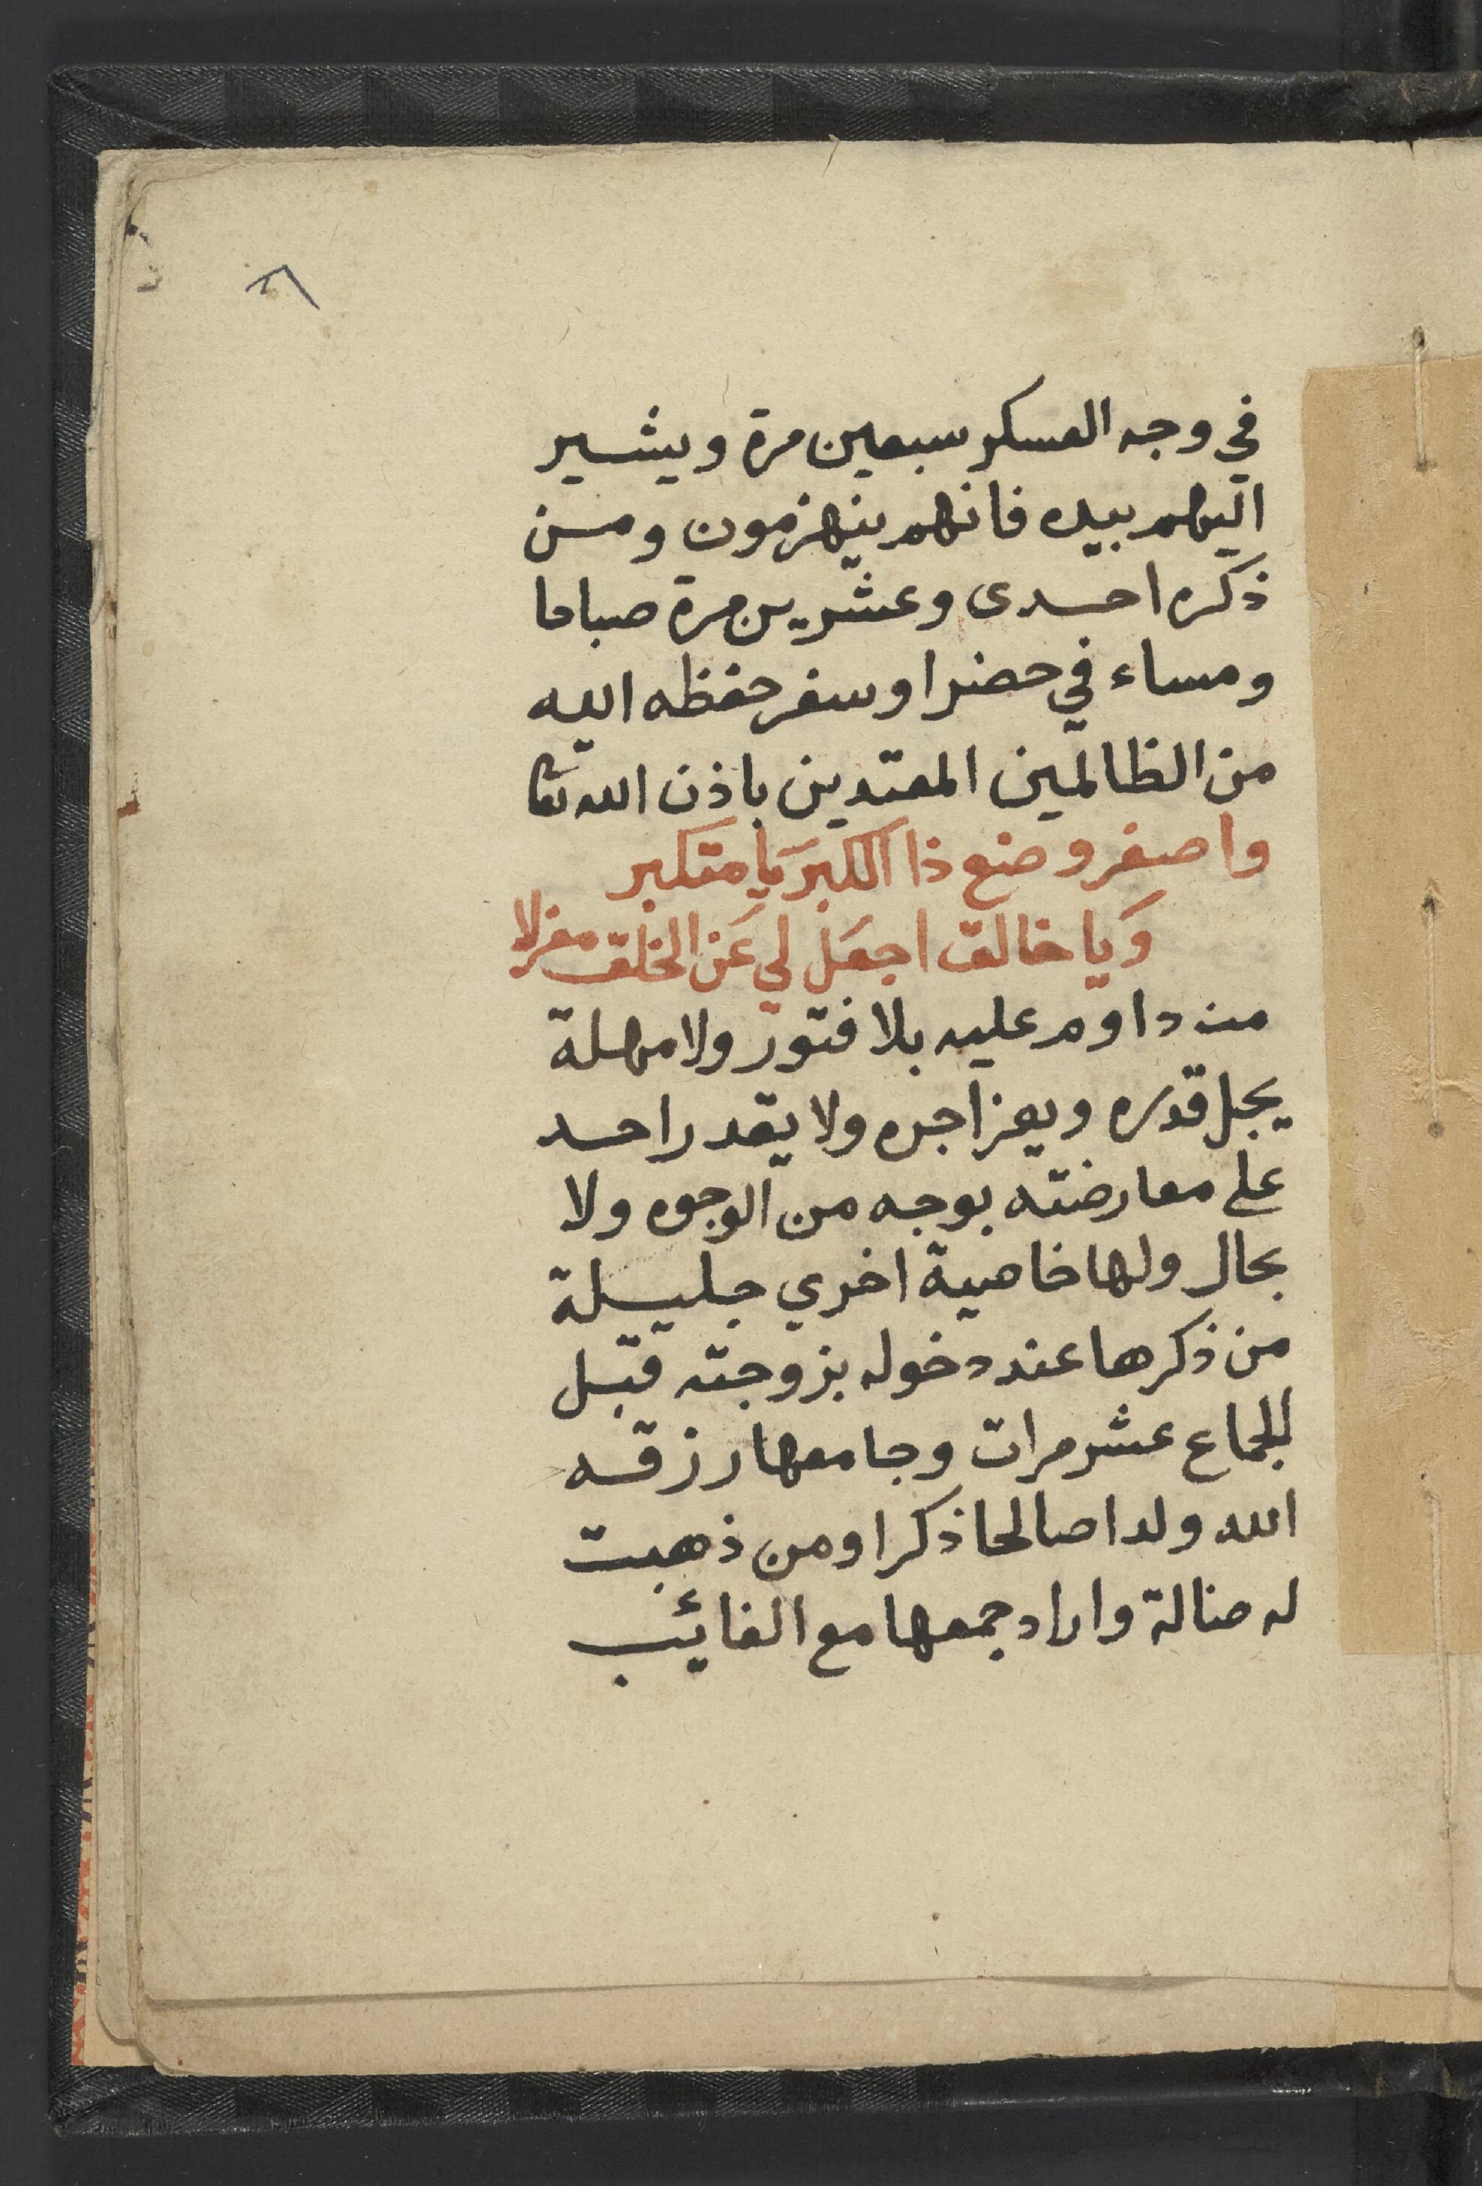 في وجه العسكر سبعين مرة ويشير
اليهم بيده فانهم ينهزمون ومن
ذكره احدى وعشرين مرة صباحا
ومساء في حضر او سفر حفظه الله
من الظالمين المعتدين باذن الله تعا
واصغر وضع ذا الكبر يا متكبر
وَيا خالق اجعَل لي عَن الخلق معزلا
من داوم عليه بلا فتور ولا مهلة
يجل قدره ويعز اجره ولا يقدر احد
على معارضته بوجه من الوجوه ولا
بحال ولها خاصية اخري جليلة
من ذكرها عند دخوله بزوجته قبل
الجماع عشر مرات وجامعها رزقه
الله ولدا صالحا ذكرا ومن ذهبت
له ضالة واراد جمعها مع الغائب